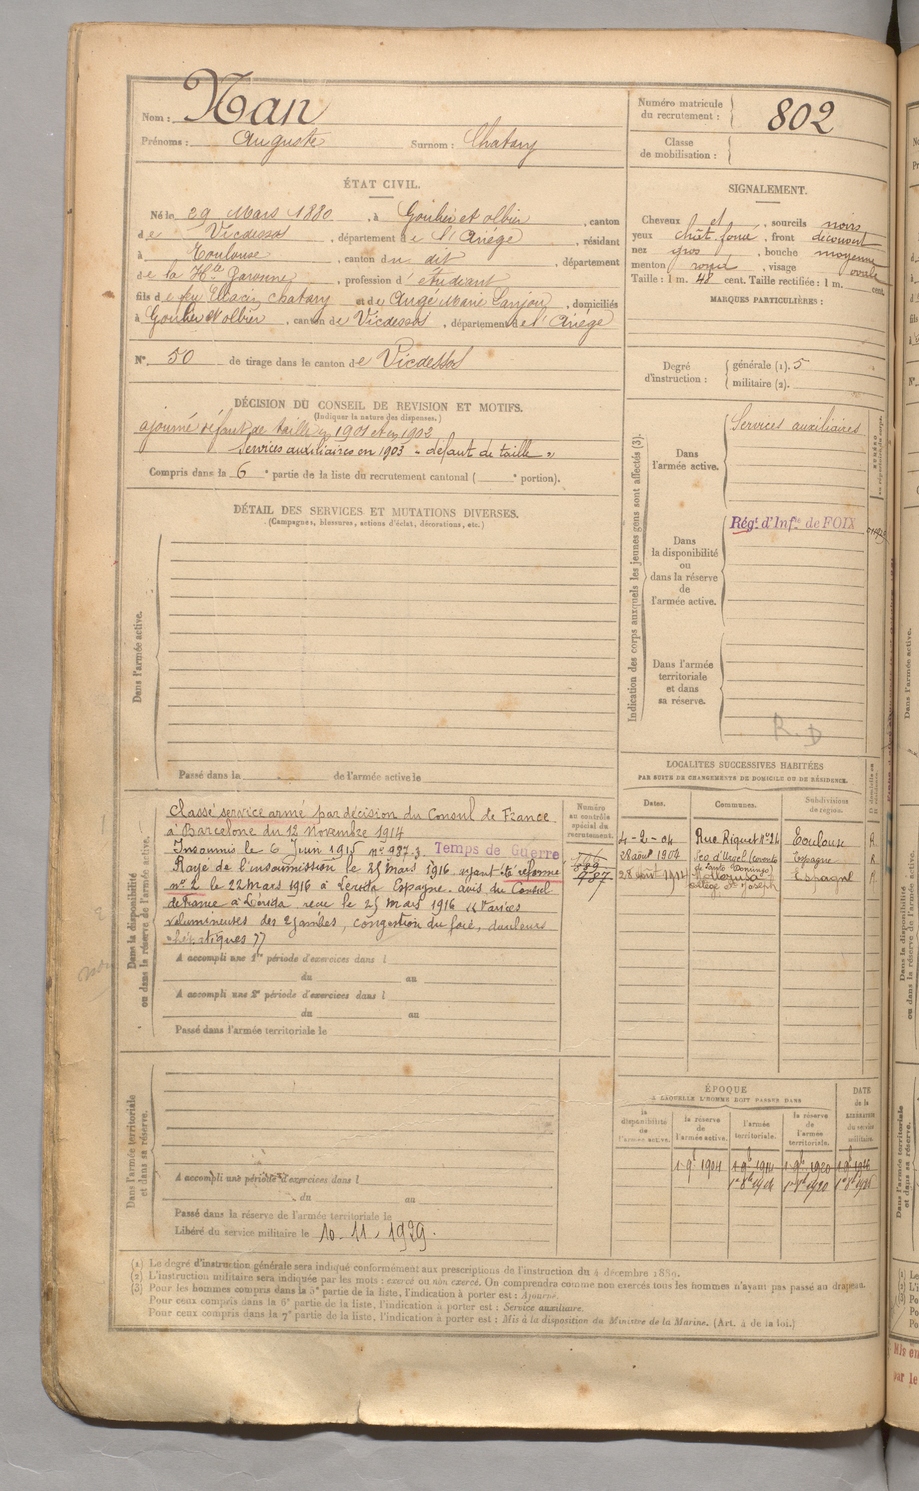 Nom : Nan
Prénoms : Auguste Surnom : Chatary
Numéro matricule du recrutement : 802
Classe de mobilisation :
ÉTAT CIVIL.
Né le 29 Mars 1880, à Goulier et Olbier, canton
de Vicdessos, département de l'Ariège, résidant
à Toulouse, canton du dit, département
de la Hte Garonne, profession d'étudiant
fils de feu chatary et de Ange Marie, domiciliés
à Goulier et Olbier, canton de Vicdessos, département de l'Ariège
N° 50 de tirage dans le canton de Vicdessos
SIGNALEMENT.
Cheveux et, sourcils noirs
yeux chât. foncé, front découvert
nez gros, bouche moyenne
menton rond, visage ovale
Taille : 1 m. 48 cent. Taille rectifiée : 1 m. cent.
MARQUES PARTICULIÈRES :
Degré d'instruction : générale (1). 5
militaire (2).
DÉCISION DU CONSEIL DE REVISION ET MOTIFS.
(Indiquer la nature des dispenses.)
ajourné défaut de taille en 1901 et en 1902
Services auxiliaires en 1903 "défaut de taille"
Compris dans la 6e partie de la liste du recrutement cantonal ( e portion).
DÉTAIL DES SERVICES ET MUTATIONS DIVERSES.
(Campagnes, blessures, actions d'éclat, décorations, etc.)
Dans l'armée active.
Passé dans la de l'armée active le
Indication des corps auxquels les jeunes gens sont affectés (3).
Dans l'armée active.
Services auxiliaires
Dans la disponibilité ou dans la réserve de l'armée active.
Régt d'Infie de FOIX
Dans l'armée territoriale et dans sa réserve.
R. D
Dans la disponibilité ou dans la réserve de l'armée active.
Classé service armé par décision du Consul de France
à Barcelone du 12 Novembre 1914
Insoumis le 6 Juin 1915 n° 987-3 Temps de Guerre
Rayé de l'insoumission le 25 mars 1916 ayant été réformé
n° 2 le 22 mars 1916 à Lerida Espagne. avis du Consul
de France à Lerida reçu le 25 mars 1916 "Varices
volumineuses des 2 jambes, congestion du foie, douleurs
A accompli une 1re période d'exercices dans l
du au
A accompli une 2e période d'exercices dans l
du au
Passé dans l'armée territoriale le
Numéro au contrôle spécial du recrutement.
787
LOCALITÉS SUCCESSIVES HABITÉES
PAR SUITE DE CHANGEMENTS DE DOMICILE OU DE RÉSIDENCE.
Dates. Communes. Subdivisions de région.
4-2-04 Rue Riquet n° 24 Toulouse R.
28 août 1907 Seo d'Urgel Espagne R
28 août 1912 Espagne R
collège St Joseph
ÉPOQUE
A LAQUELLE L'HOMME DOIT PASSER DANS
la disponibilité de l'armée active.
la réserve de l'armée active.
l'armée territoriale.
la réserve de l'armée territoriale.
DATE de la LIBÉRATION du service militaire.
Dans l'armée territoriale et dans sa réserve.
A accompli une période d'exercices dans l
du au
Passé dans la réserve de l'armée territoriale le
Libéré du service militaire le 10-11-1929.
(1) Le degré d'instruction générale sera indiqué conformément aux prescriptions de l'instruction du 4 décembre 1889.
(2) L'instruction militaire sera indiquée par les mots : exercé ou non exercé. On comprendra comme non exercés tous les hommes n'ayant pas passé au drapeau.
(3) Pour les hommes compris dans la 5e partie de la liste, l'indication à porter est : Ajourné.
Pour ceux compris dans la 6e partie de la liste, l'indication à porter est : Service auxiliaire.
Pour ceux compris dans la 7e partie de la liste, l'indication à porter est : Mis à la disposition du Ministre de la Marine. (Art. 4 de la loi.)